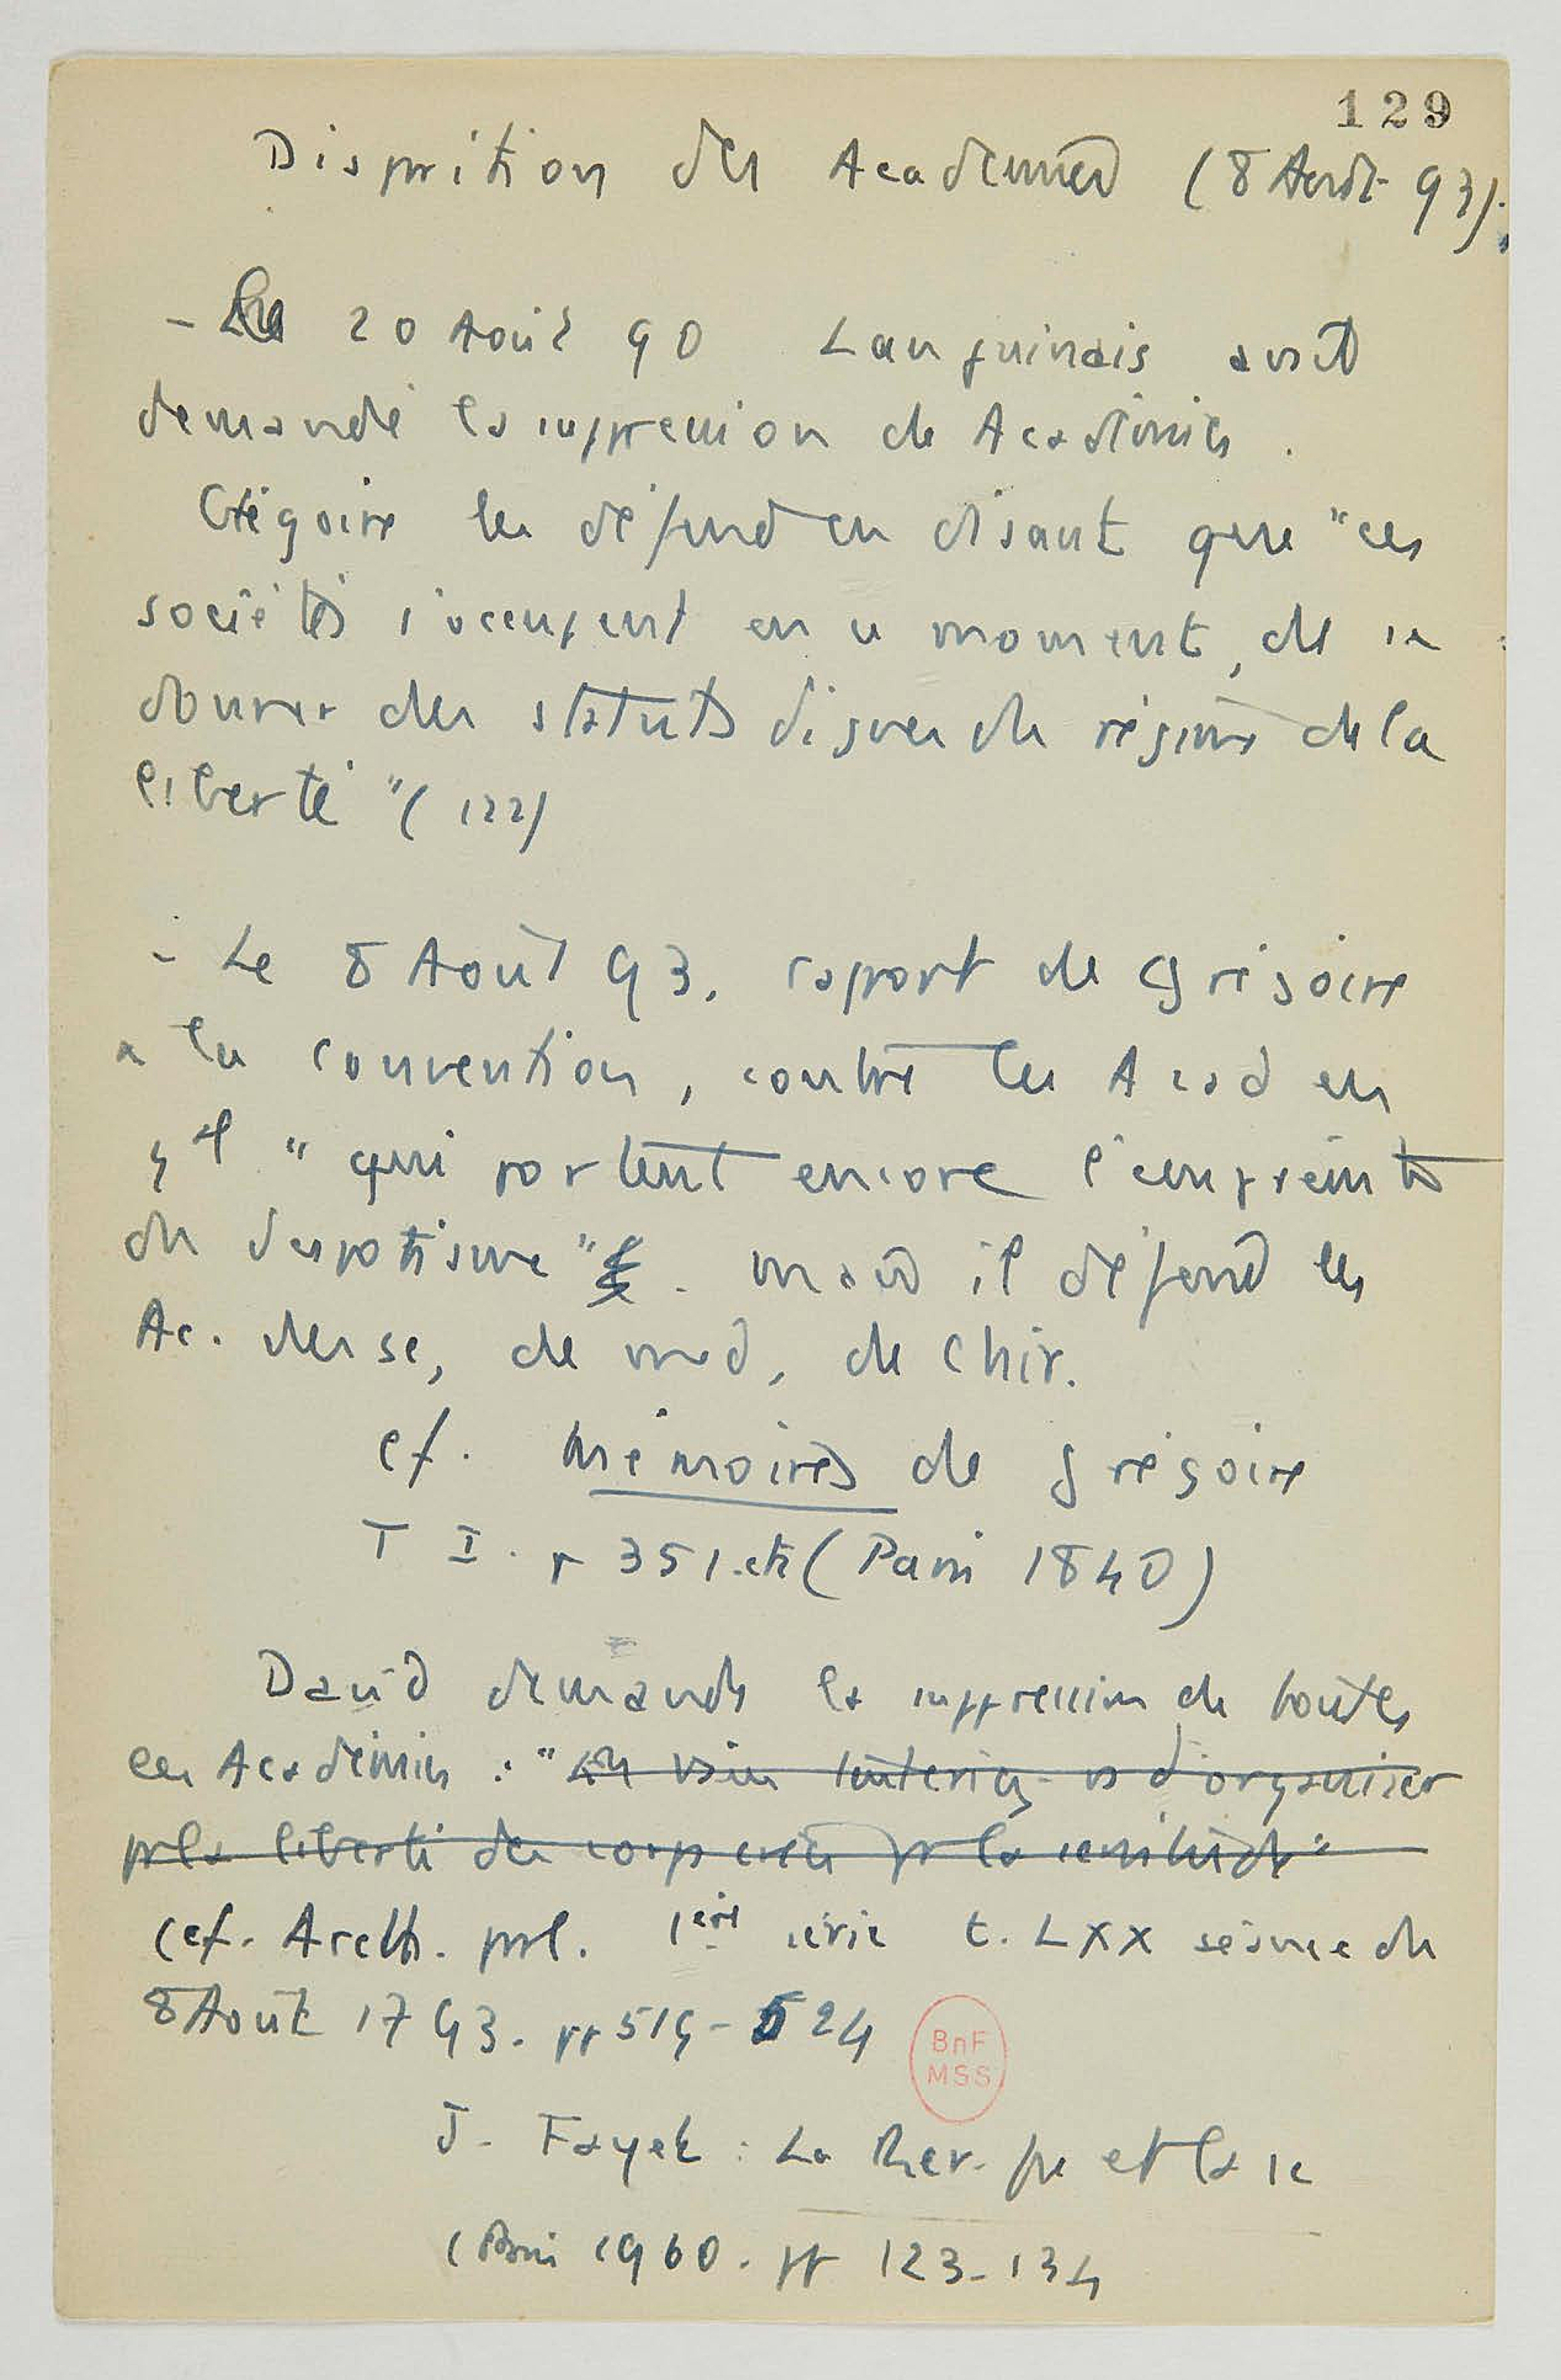 129
Disparition des Academies (8 Août 93).
- Le 20 Août 90 Languinais avait
demandé la suppression de Académies.
Grégoire les défend en disant que "ces
sociétés s'occupent en ce moment, de se
donner des statuts dignes du régime de la
liberté" (122)
- Le 8 Août 93, rapport de Grégoire
a la convention, contre les Acad en
gl "qui portent encore l'empreinte
du despotisme". mais il défend les
Ac. des sc, de med, de Chir.
cf. Mémoires de Grégoire
T I. p 351.etc (Paris 1840)
David demande la suppression de toutes
les Académies : "En vain d'organiser
pr la liberté des corps créés pr la servitude"
(cf. Arch. parl. 1ère série t. LXX séance du
8 Août 1793. pp 519-524
J. Fayet : La Rev. fse et la sc
(Paris 1960. pp 123-134
BnF
MSS